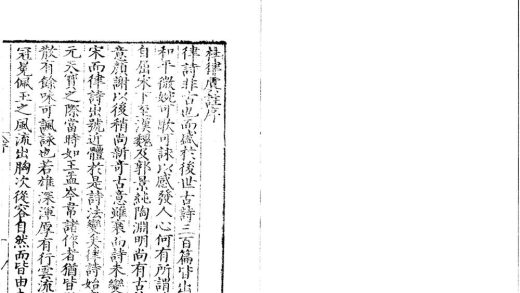 杜律虞註序
律詩非古也而盛於後世古詩三百篇皆出
和平微婉可歌可詠以感發人心何有所謂
自屈宋下至漢魏及郭景純陶淵明尚有古
意顏謝以後稍尚新奇古意雖衰而詩未變
宋而律詩出號近體於是詩法變矣律詩始
元天寶之際當時如王孟岑韋諸作者猶皆
散有餘味可諷詠也若雄深渾厚有行雲流
冠冕佩玉之風流出胸次從容自然而皆由